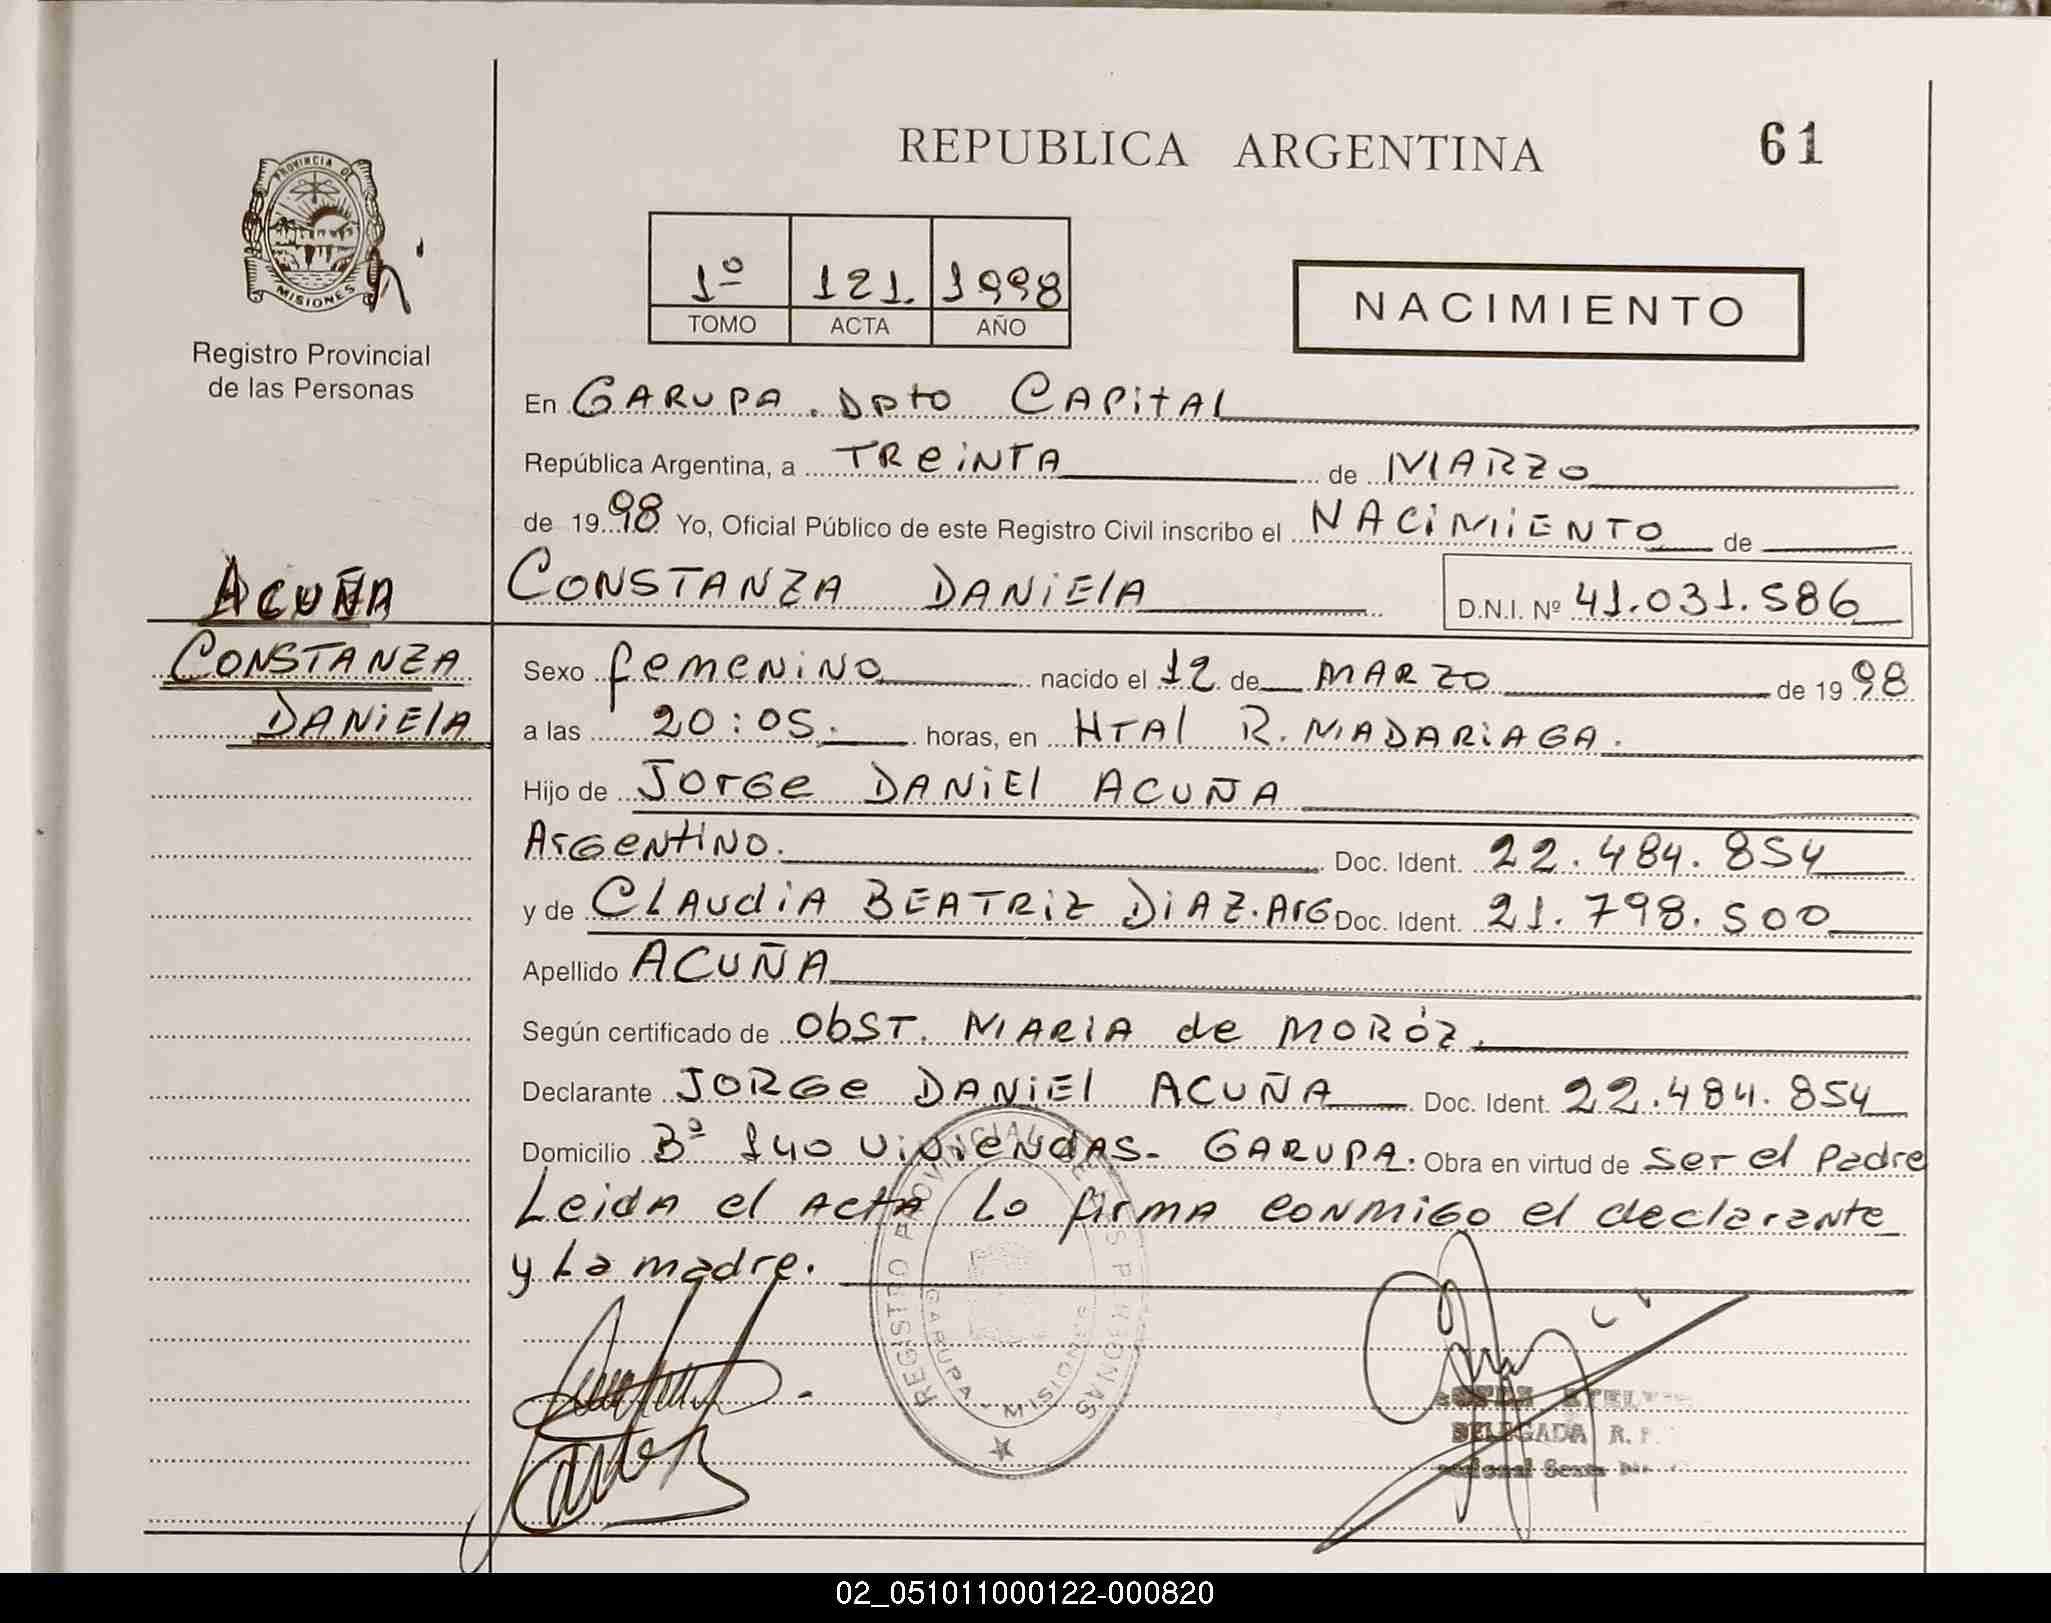 REPUBLICA ARGENTINA
61
PROVINCIA DE
MISIONES
Registro Provincial
de las Personas
1º 121. 1998
TOMO ACTA AÑO
NACIMIENTO
En GARUPA. Dpto CAPITAL
República Argentina, a TREINTA de MARZO
de 1998 Yo, Oficial Público de este Registro Civil inscribo el NACIMIENTO de
ACUÑA
CONSTANZA DANIELA D.N.I. Nº 41.031.586
CONSTANZA
DANIELA
Sexo femenino nacido el 12 de MARZO de 1998
a las 20:05. horas, en HTAL R. MADARIAGA.
Hijo de JORGE DANIEL ACUÑA
Argentino. Doc. Ident. 22.484.854
y de CLAUDIA BEATRIZ DIAZ. ARG Doc. Ident. 21.798.500
Apellido ACUÑA
Según certificado de ObST. MARIA de MORÓZ.
Declarante JORGE DANIEL ACUÑA Doc. Ident. 22.484.854
Domicilio Bº 140 ViviendAS- GARUPA. Obra en virtud de ser el padre
Leida el acta lo firma conmigo el declarante
y la madre.
REGISTRO PROVINCIAL DE LAS PERSONAS
GARUPA - MISIONES
DELEGADA R. P.
02_051011000122-000820